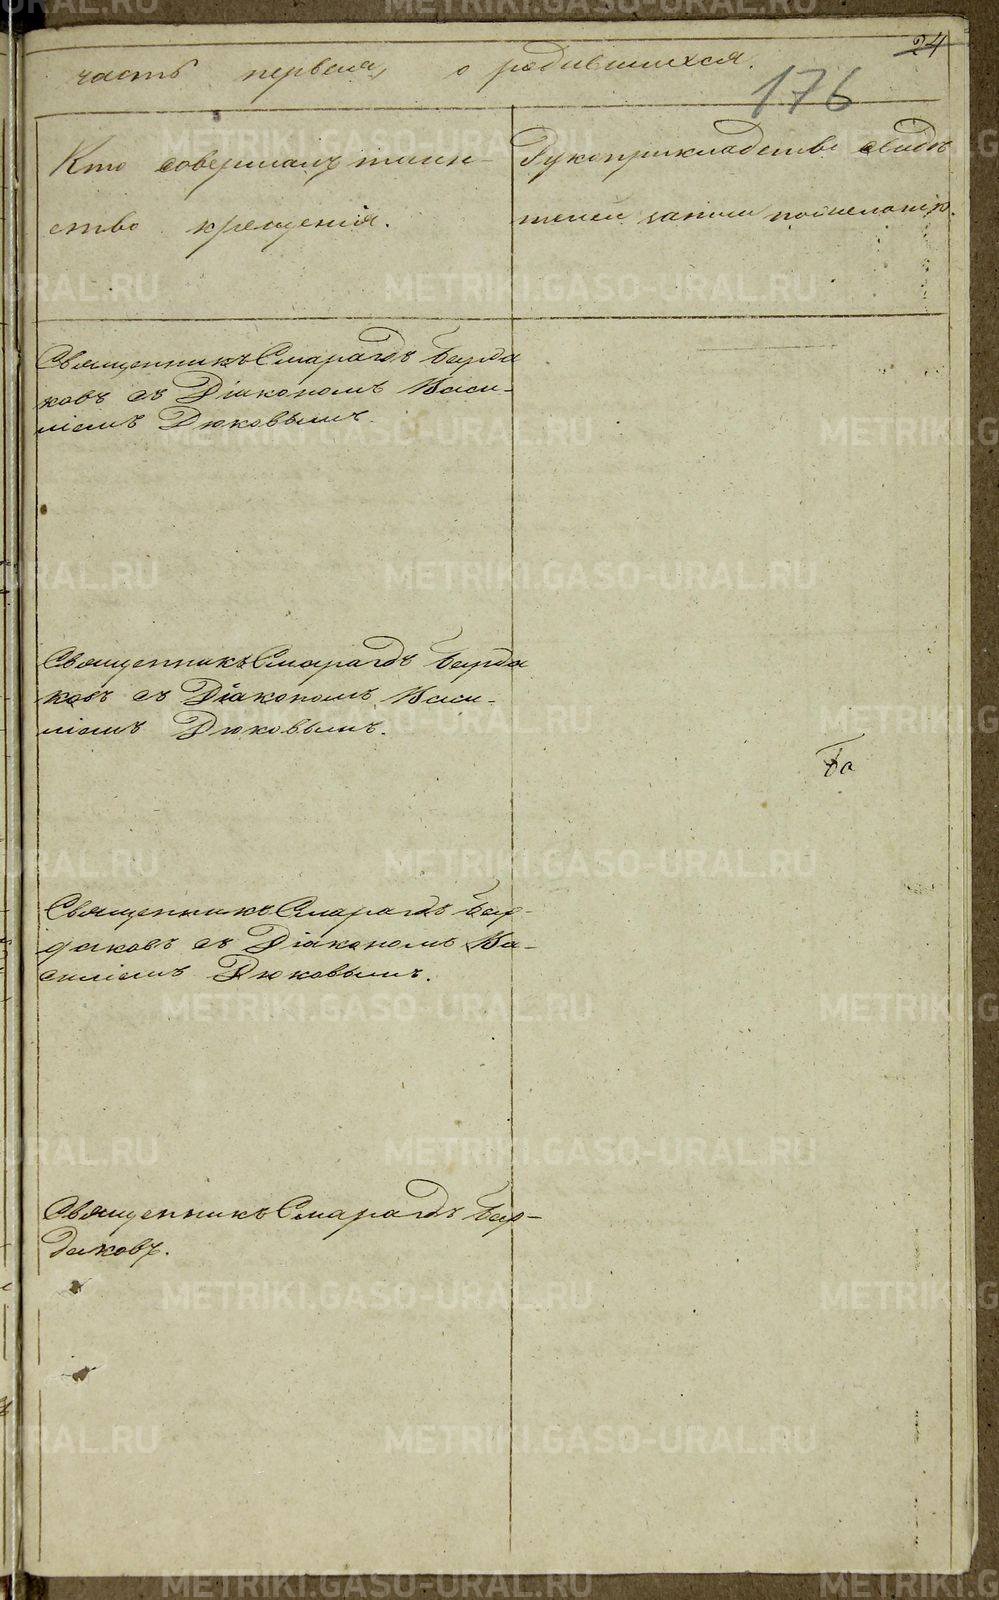 24
часть первая, о родившихся.
176
Кто совершалъ таин-
ство крещенія.
Рукоприкладство свидѣ
телей записи по желанію.
Священникъ Смарагдъ Барда
ковъ съ Діакономъ Васи-
ліемъ Дюковымъ.
Священникъ Смарагдъ Барда
ковъ съ Діакономъ Васи-
ліемъ Дюковымъ.
Ба
Священникъ Смарагдъ Бар-
даковъ съ Діакономъ Ва-
силіемъ Дюковымъ.
Священникъ Смарагдъ Бар-
даковъ.
METRIKI.GASO-URAL.RU